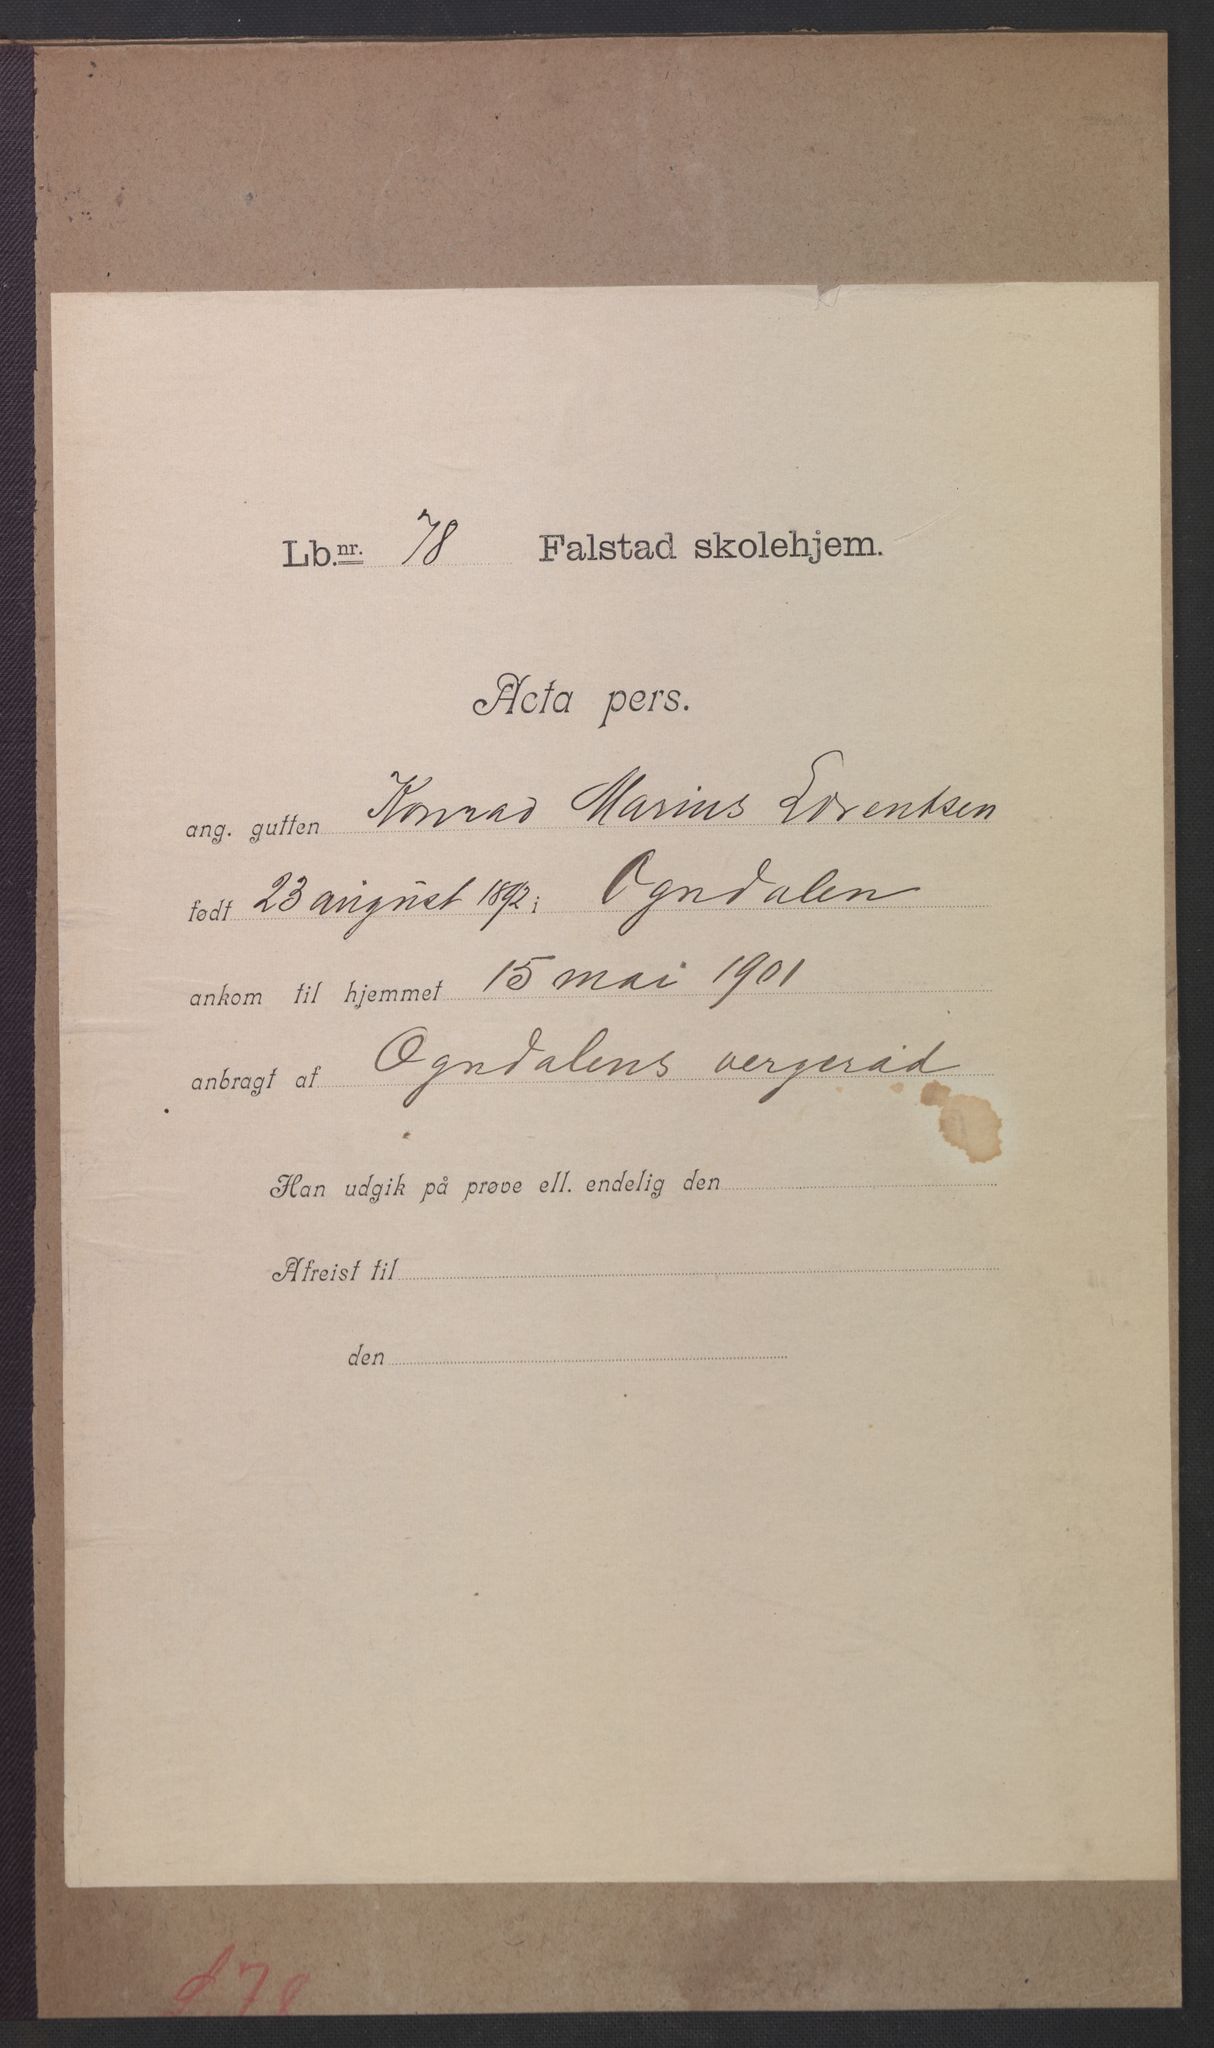 Lb.nr. 78 Falstad skolehjem.
Acta pers.
ang. gutten Konrad Marius Lorentsen
født 23 august 1892 i Ogndalen
ankom til hjemmet 15 mai 1901
anbragt af Ogndalens vergeråd
Han udgik på prøve ell. endelig den
Afreist til
den